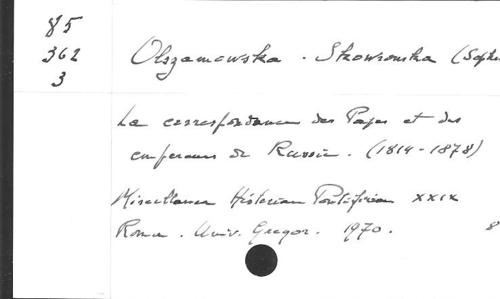 85
362
3
Olszamowska - Skowronska (Sophi
La correspondance des Papes et des
empereurs de Russie. (1814-1878)
Miscellanea Historiae Pontificiae XXIX
Roma. Univ. Gregor. 1970. 8